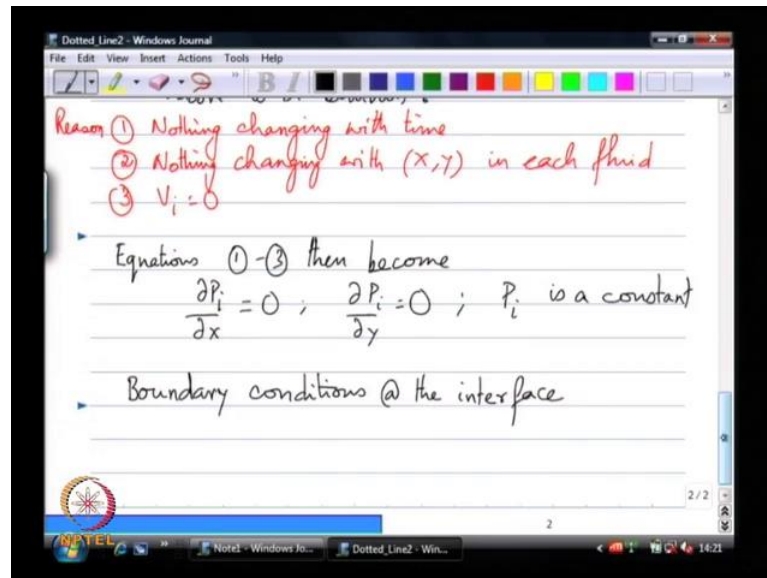 Dotted_Line2 - Windows Journal
File Edit View Insert Actions Tools Help
Reason ① Nothing changing with time
② Nothing changing with (x,y) in each fluid
③ Vi = 0
Equations ①-③ then become
∂Pi/∂x = 0 ; ∂Pi/∂y = 0 ; Pi is a constant
Boundary conditions @ the interface
2 / 2
2
NPTEL
Note1 - Windows Jo... Dotted_Line2 - Win... 14:21